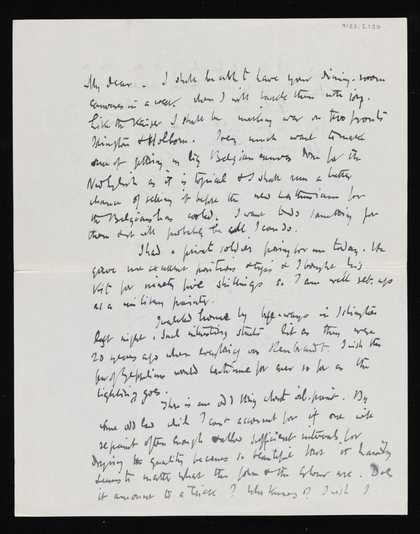 My dear. I shall be able to have your dining-room
canvases in a week when I will tackle them with joy.
Like the Kaiser I shall be making war on two fronts
Islington & Holborn. I very much want to make
sure of getting my big Belgian canvas done for the
New English as it is topical & I shall run a better
chance of selling it before the new enthusiasm for
the Belgians has cooled. I want to do something for
them & it will probably be all I can do.
I had a private soldier posing for me today. He
gave me excellent positions & tips & I bought his
kit for ninety five shillings so I am well set-up
as a military painter.
I walked home by bye-ways in Islington
last night. Such interesting streets lit as they were
20 years ago when everything was Rembrandt. I wish the
fear of Zeppelins would continue for ever so far as the
lighting goes.
There is one odd thing about oil-paint. By
some odd law which I can't account for if one will
repaint often enough & allow sufficient intervals for
drying the quality becomes so beautiful that it hardly
seems to matter what the form & the colour are. Does
it amount to a trick? Who knows? I wish I